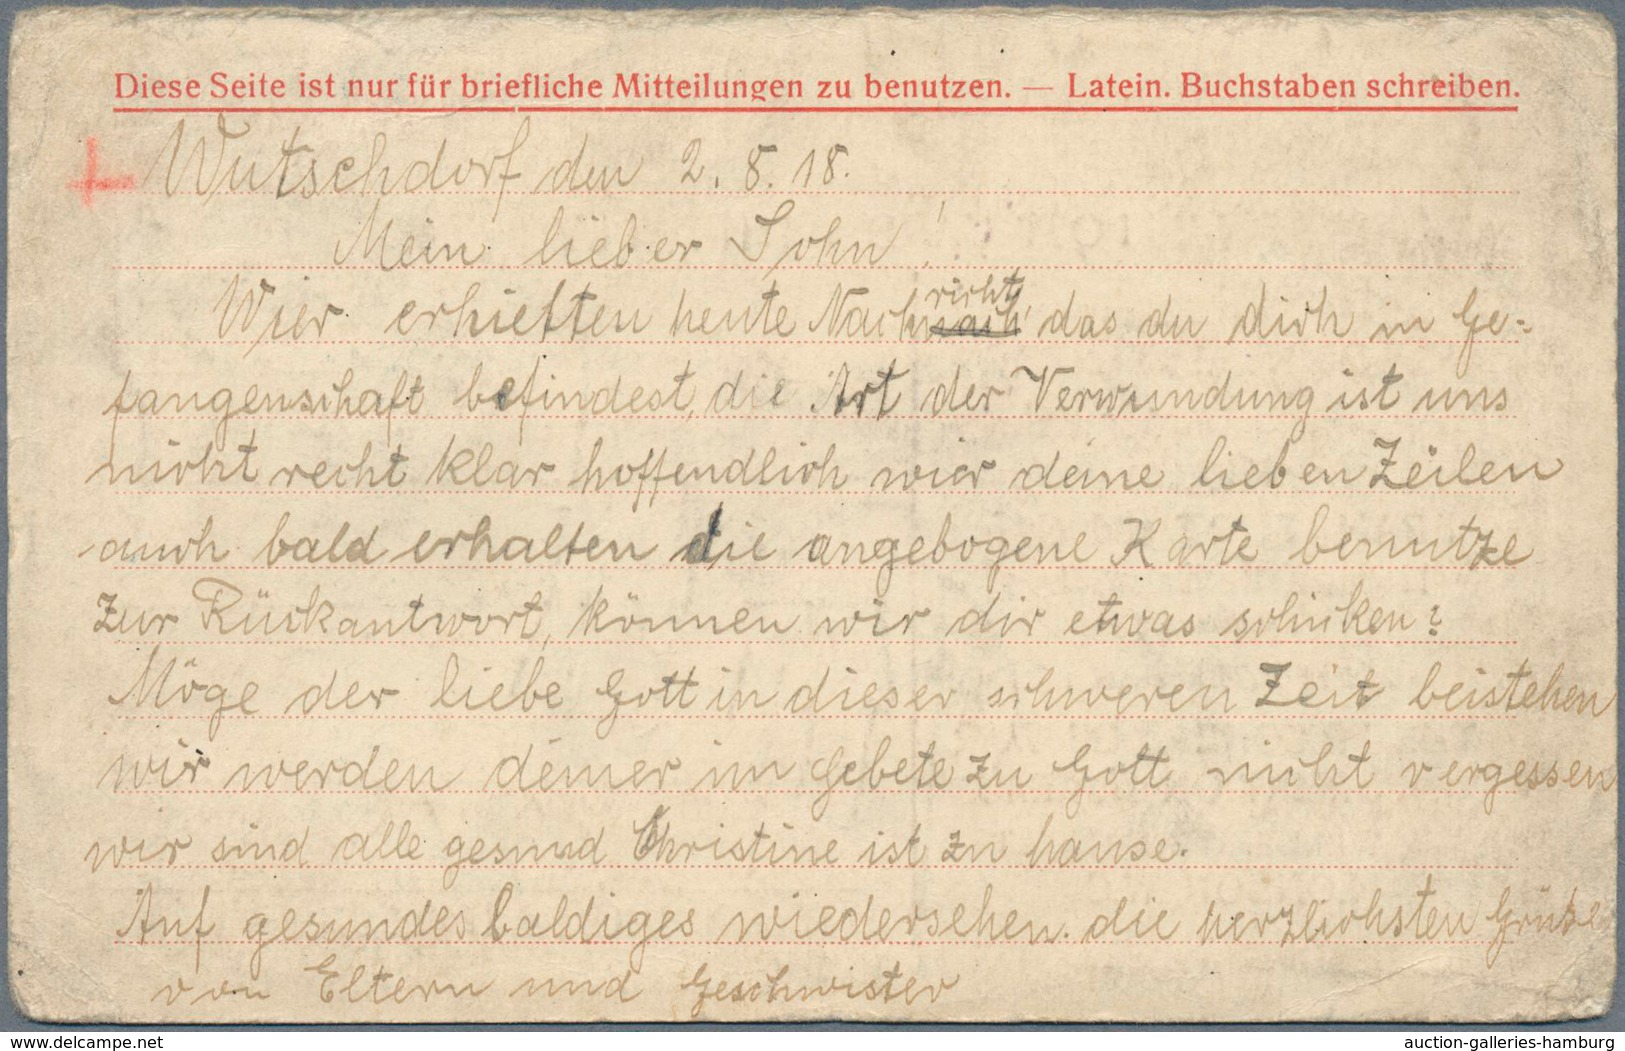 Diese Seite ist nur für briefliche Mitteilungen zu benutzen. — Latein. Buchstaben schreiben.
Wutschdorf den 2. 8. 18.
Mein lieber Sohn!
richt
Wier erhielten heute Nach das du dich in Ge=
fangenschaft befindest, die Art der Verwundung ist uns
nicht recht klar hoffendlich wier deine lieben Zeilen
auch bald erhalten die angebogene Karte benutze
zur Rückantwort, können wir dir etwas schicken?
Möge der liebe Gott in dieser schweren Zeit beistehen
wir werden deiner im Gebete zu Gott nicht vergessen
wir sind alle gesund Christine ist zu hause.
Auf gesundes baldiges wiedersehen. die herzlichsten Grüße
von Eltern und Geschwister
delcampe.net
auction-galleries-hamburg